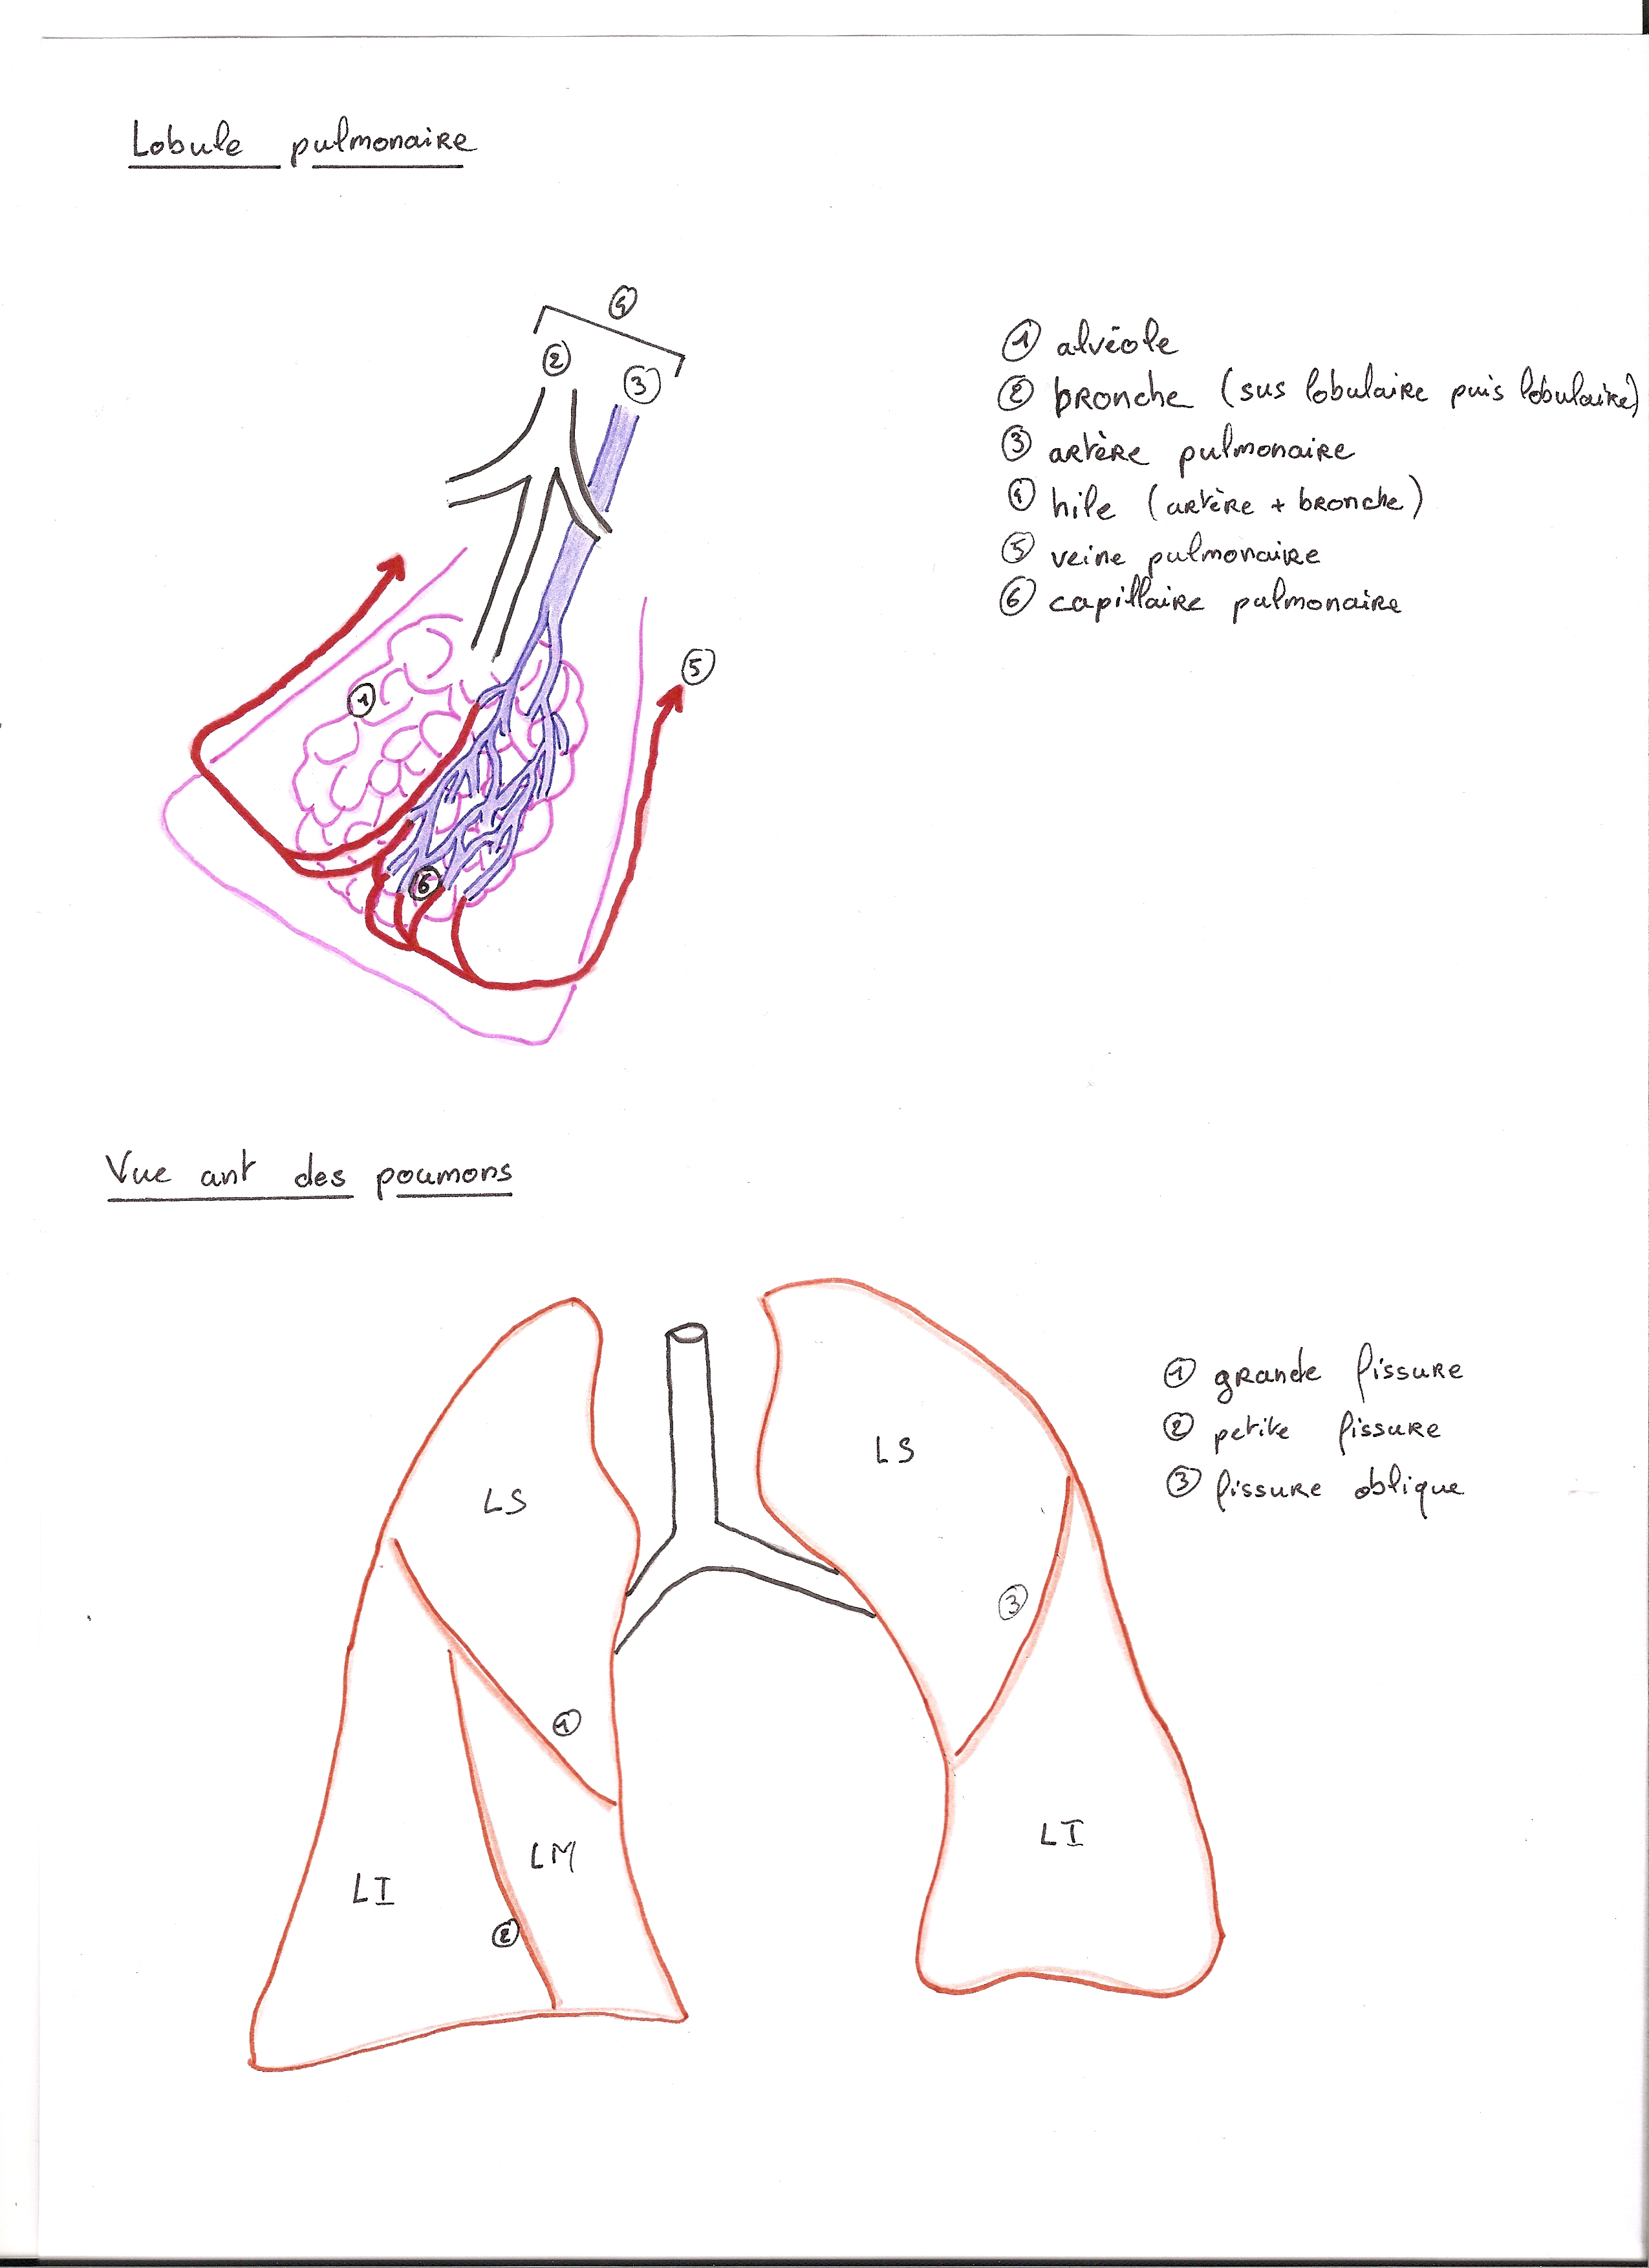 Lobule pulmonaire
④
②
③
① alvéole
② bronche (sus lobulaire puis lobulaire)
③ artère pulmonaire
④ hile (artère + bronche)
⑤ veine pulmonaire
⑥ capillaire pulmonaire
⑤
①
⑥
Vue ant des poumons
① grande fissure
② petite fissure
③ fissure oblique
LS
LS
③
①
LI
LM
LI
②